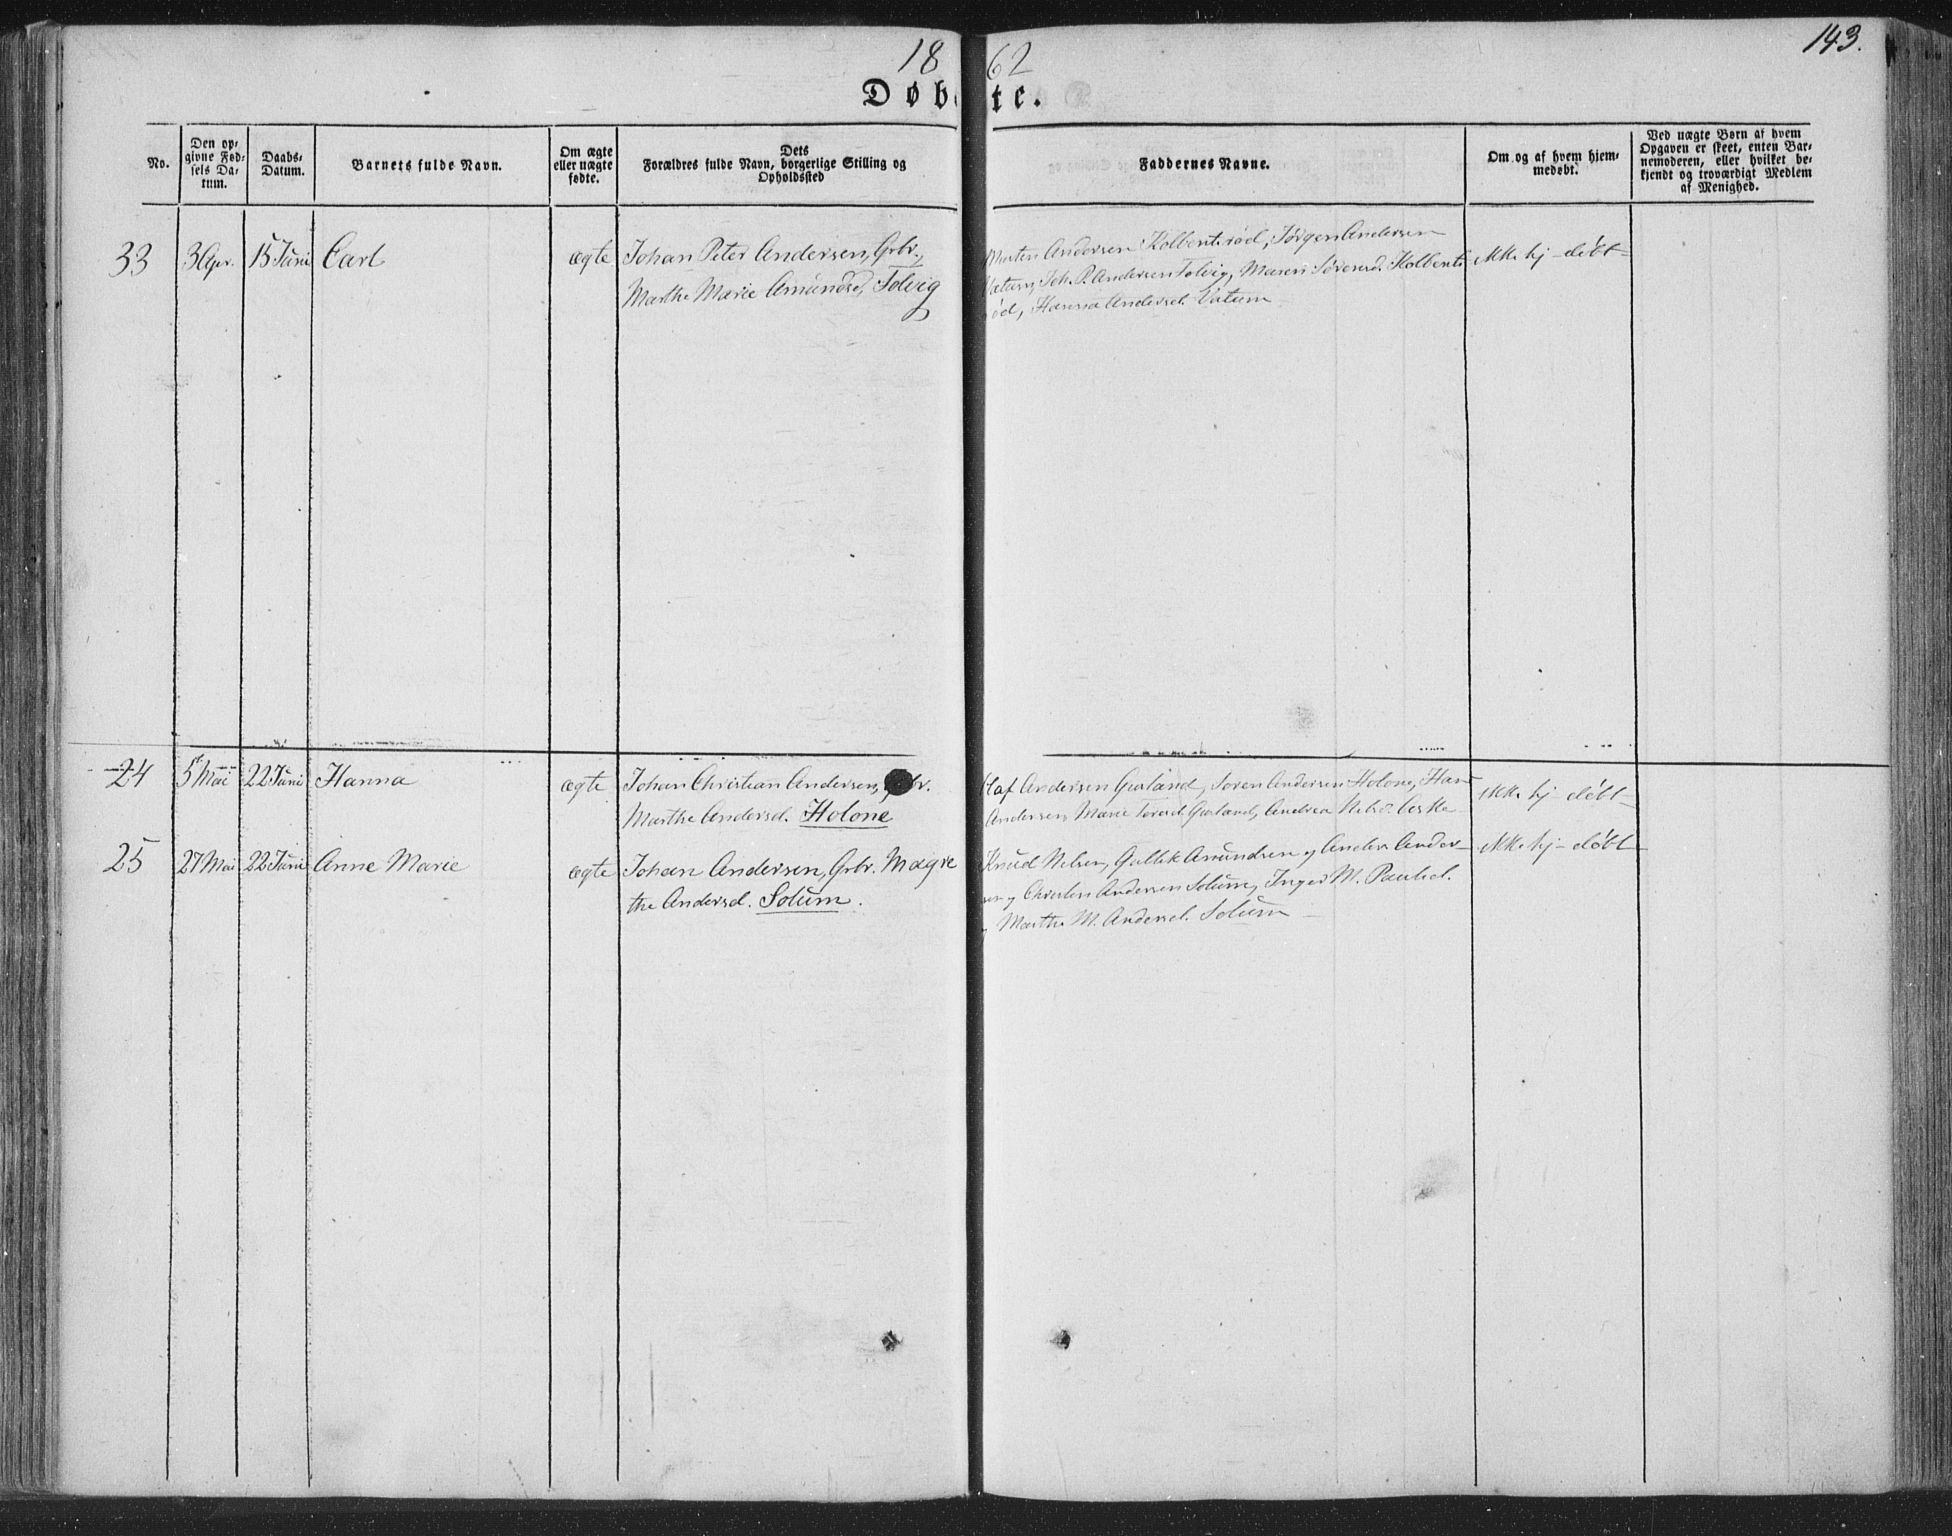 1862
143.
Døbte.
No.
Den opgivne Fødsels Datum.
Daabs-Datum.
Barnets fulde Navn.
Om ægte eller uægte fødte.
Dets Forældres fulde Navn, borgerlige Stilling og Opholdssted
Faddernes Navne.
Om og af hvem hjemmedøbt.
Ved uægte Børn af hvem Opgaven er skeet, enten Barnemoderen, eller hvilket bekjendt og troværdigt Medlem af Menighed.
33 3 Apr. 15 Juni Carl ægte Johan Peter Andersen, Grbr.,
Marthe Marie Amundsd, Tolvig
Morten Andersen Kolbentsrød, Jørgen Andersen
Vatum, Joh. P. Andersen Tolvig, Maren Sørensd. Kolbents
rød, Hanna Andersd. Vatum
ikke hj-døbt-
24 5 Mai 22 Juni Hanna ægte Johan Christian Andersen,
Marthe Andersd. Holone
Olaf Andersen Søren Andersen Holone,
Andersen, Marie Andrea
ikke hj-døbt-
25 27 Mai 22 Juni Anne Marie ægte Johan Andersen, Grbr. Magre
the Andersd. Solum.
Knud Nelsen, Gullik Amundsen og Anders Ander-
sen og Christen Andersen Solum, Inger M. Paulsd.
og Marthe M. Andersd. Solum-
ikke hj-døbt